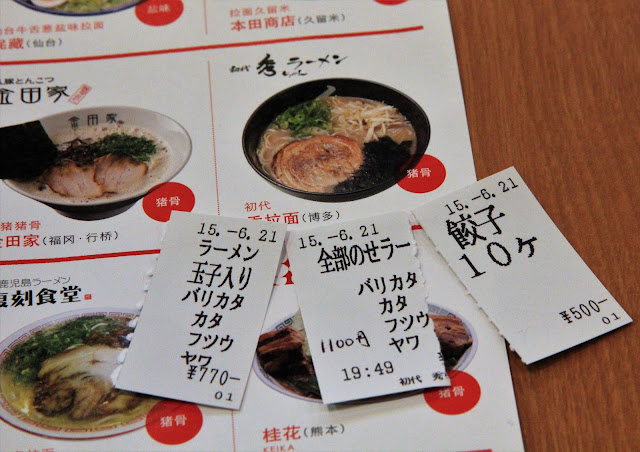 盐味
仙台牛舌葱盐味拉面
(仙台)
拉面久留米
本田商店(久留米)
豚とんこつ
金田家
金田家
猪骨
猪猪骨
金田家(福冈・行桥)
初代 秀 ラーメン
ちゃん
猪骨
初代
秀拉面(博多)
鹿児島ラーメン
復刻食堂
猪骨
桂花(熊本)
KEIKA
猪骨
15.-6.21
ラーメン
玉子入り
バリカタ
カタ
フツウ
ヤワ
¥770-
01
15.-6.21
全部のせラー
バリカタ
カタ
フツウ
1100円
ヤワ
19:49
初代 秀
15.-6.21
餃子
10ケ
¥500-
01